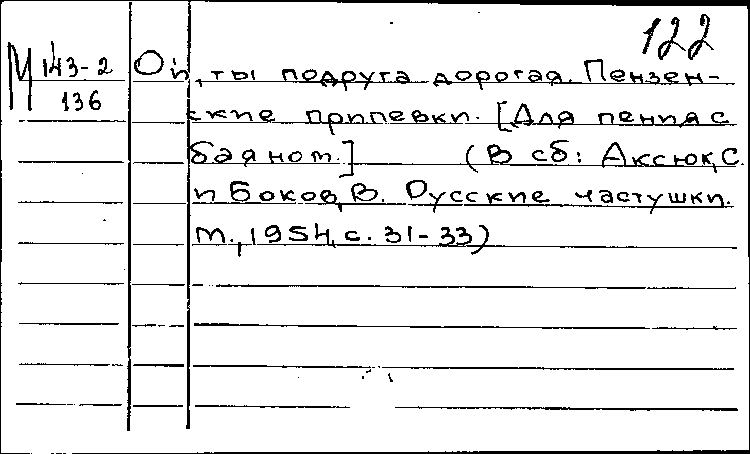 122
М 143-2
136
Ой, ты подруга дорогая. Пензен-
ские припевки. [Для пения с
баяном.] (В сб: Аксюк, С.
и Боков, В. Русские частушки.
М., 1954, с. 31-33)